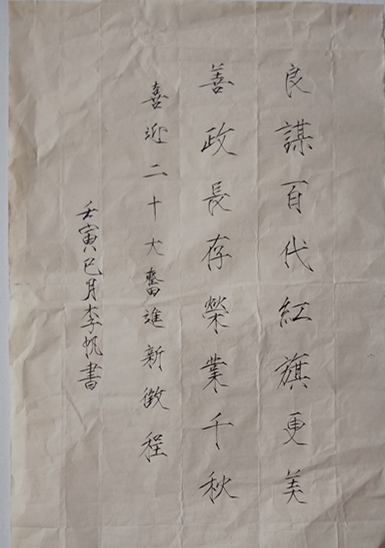 良謀百代紅旗更美
善政長存榮業千秋
喜迎二十大奮進新徵程
壬寅巳月李帆書